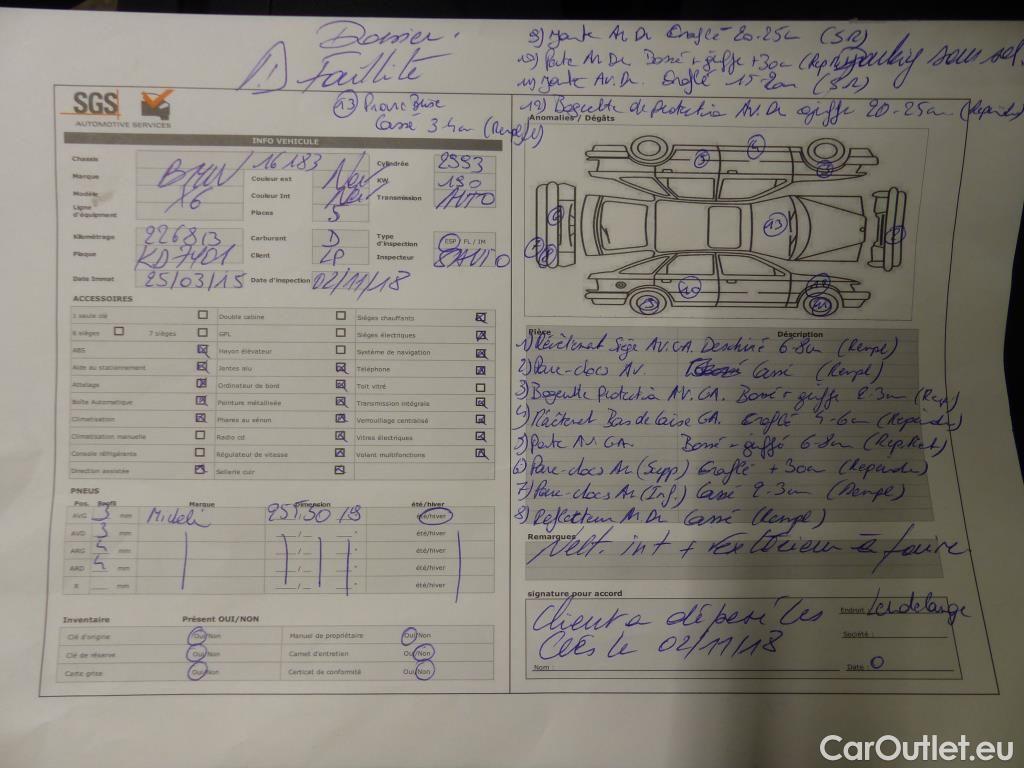 Dossier:
Faillite
9) Jante AR Dr Eraflé 20-25cm (SR)
10) Porte AR Dr Bossé + griffe +30cm
Parking sous sol.
11) Jante AV. Dr. Eraflé 15-20cm (SR)
12) Baguette de protection AV. Dr griffe 20-25cm
13) Cassé 3-4cm
SGS
AUTOMOTIVE SERVICES
Anomalies / Dégâts
INFO VEHICULE
Chassis 16183 Cylindrée 2993
Marque BMW Couleur ext Noir KW 190
Modèle X6 Couleur Int Noir Transmission AUTO
Ligne d'équipement Places 5
Kilométrage 226813 Carburant D Type d'inspection ESP / FL / IM
Plaque KD7401 Client LP Inspecteur
Date Immat 25/03/15 Date d'inspection 02/11/18
ACCESSOIRES
1 seule clé Double cabine Sièges chauffants
6 sièges 7 sièges GPL Sièges électriques
ABS Hayon élévateur Système de navigation
Aide au stationnement Jantes alu Téléphone
Attelage Ordinateur de bord Toit vitré
Boîte Automatique Peinture métallisée Transmission intégrale
Climatisation Phares au xénon Verrouillage centralisé
Climatisation manuelle Radio cd Vitres électriques
Console réfrigérante Régulateur de vitesse Volant multifonctions
Direction assistée Sellerie cuir
PNEUS
Pos. Profil Marque Dimension été/hiver
AVG 3 mm Micheli 255/50/19 été/hiver
AVD 3 mm été/hiver
ARG 5 mm été/hiver
ARD 5 mm été/hiver
R mm été/hiver
Inventaire Présent OUI/NON
Clé d'origine Oui/Non Manuel de propriétaire Oui/Non
Clé de réserve Oui/Non Carnet d'entretien Oui/Non
Carte grise Oui/Non Certicat de conformité Oui/Non
Pièce Déscription
1) Siège AV.GA. Déchiré 6-8cm (Rempl)
2) Pare-chocs AV. Cassé (Rempl)
3) Baguette protection AV.GA. Bossé + griffe 2-3cm
4) Bas de caisse GA. Eraflé 4-6cm
5) Porte AV.GA. Bossé + griffé 6-8cm
6) Pare-chocs AR (Supp) Eraflé +30cm
7) Pare-chocs AR (Inf.) Cassé 2-3cm (Rempl)
8) Reflecteur AR Dr Cassé (Rempl)
Remarques
Nett. int + extérieur à faire
signature pour accord
Client a déposé les
Clés le 02/11/18
Endroit: Leudelange
Société:
Nom:
Date:
CarOutlet.eu